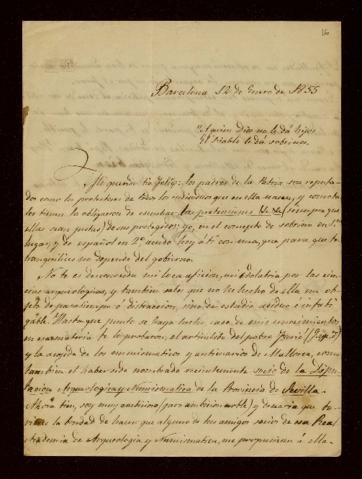 Barcelona 12 de Enero de 1855
"A quien Dios no le dá hijos
El Diablo le dá sobrinos.
Mi querido tio Felix: los padres de la Patria son reputa-
dos como los protectores de los individuos que en ella moran, y con este
los tienen la obligacion de escuchar las pretenciones siempre que
ellas sean justas, de sus protegidos: yo, en el concepto de sobrino en 1er
lugar, y de español en 2º acudo hoy á ti con una, que para que te
tranquilices no depende del gobierno.
No te es desconocida mi loca aficion, mi idolatria por las cien-
cias arqueológicas, y tambien sabes que no he hecho de ella un ob-
jeto de pasatiempo, ó distraccion, sino de estudio sério é infati-
gable. Hasta que punto se haya hecho caso de mis conocimientos
en esa materia te lo probará, el articulito del padre
y la acojida de los numismáticos y anticuarios de Mallorca, como
tambien el haber sido nombrado recientemente socio de la Dipu-
tacion Arqueológica y Numismática de la Provincia de Sevilla.
Ahora bien, soy muy ambicioso (pero ambicion noble) y desearia que tu-
vieras la bondad de hacer que alguno de tus amigos socios de esa Real
Academia de Arqueología y Numismática, me propusieran á ella.